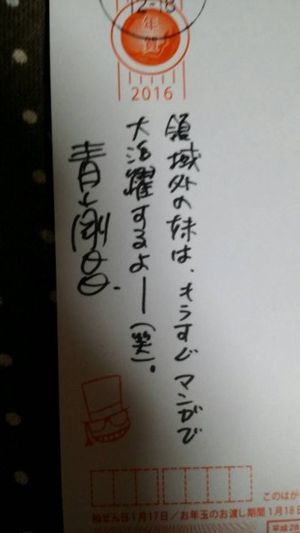 12-18
年賀
2016
領域外の妹は、もうすぐマンガで
大活躍するよー(笑)。
青山剛昌
このはが
抽せん日1月17日/お年玉のお渡し期間1月18日
平成28